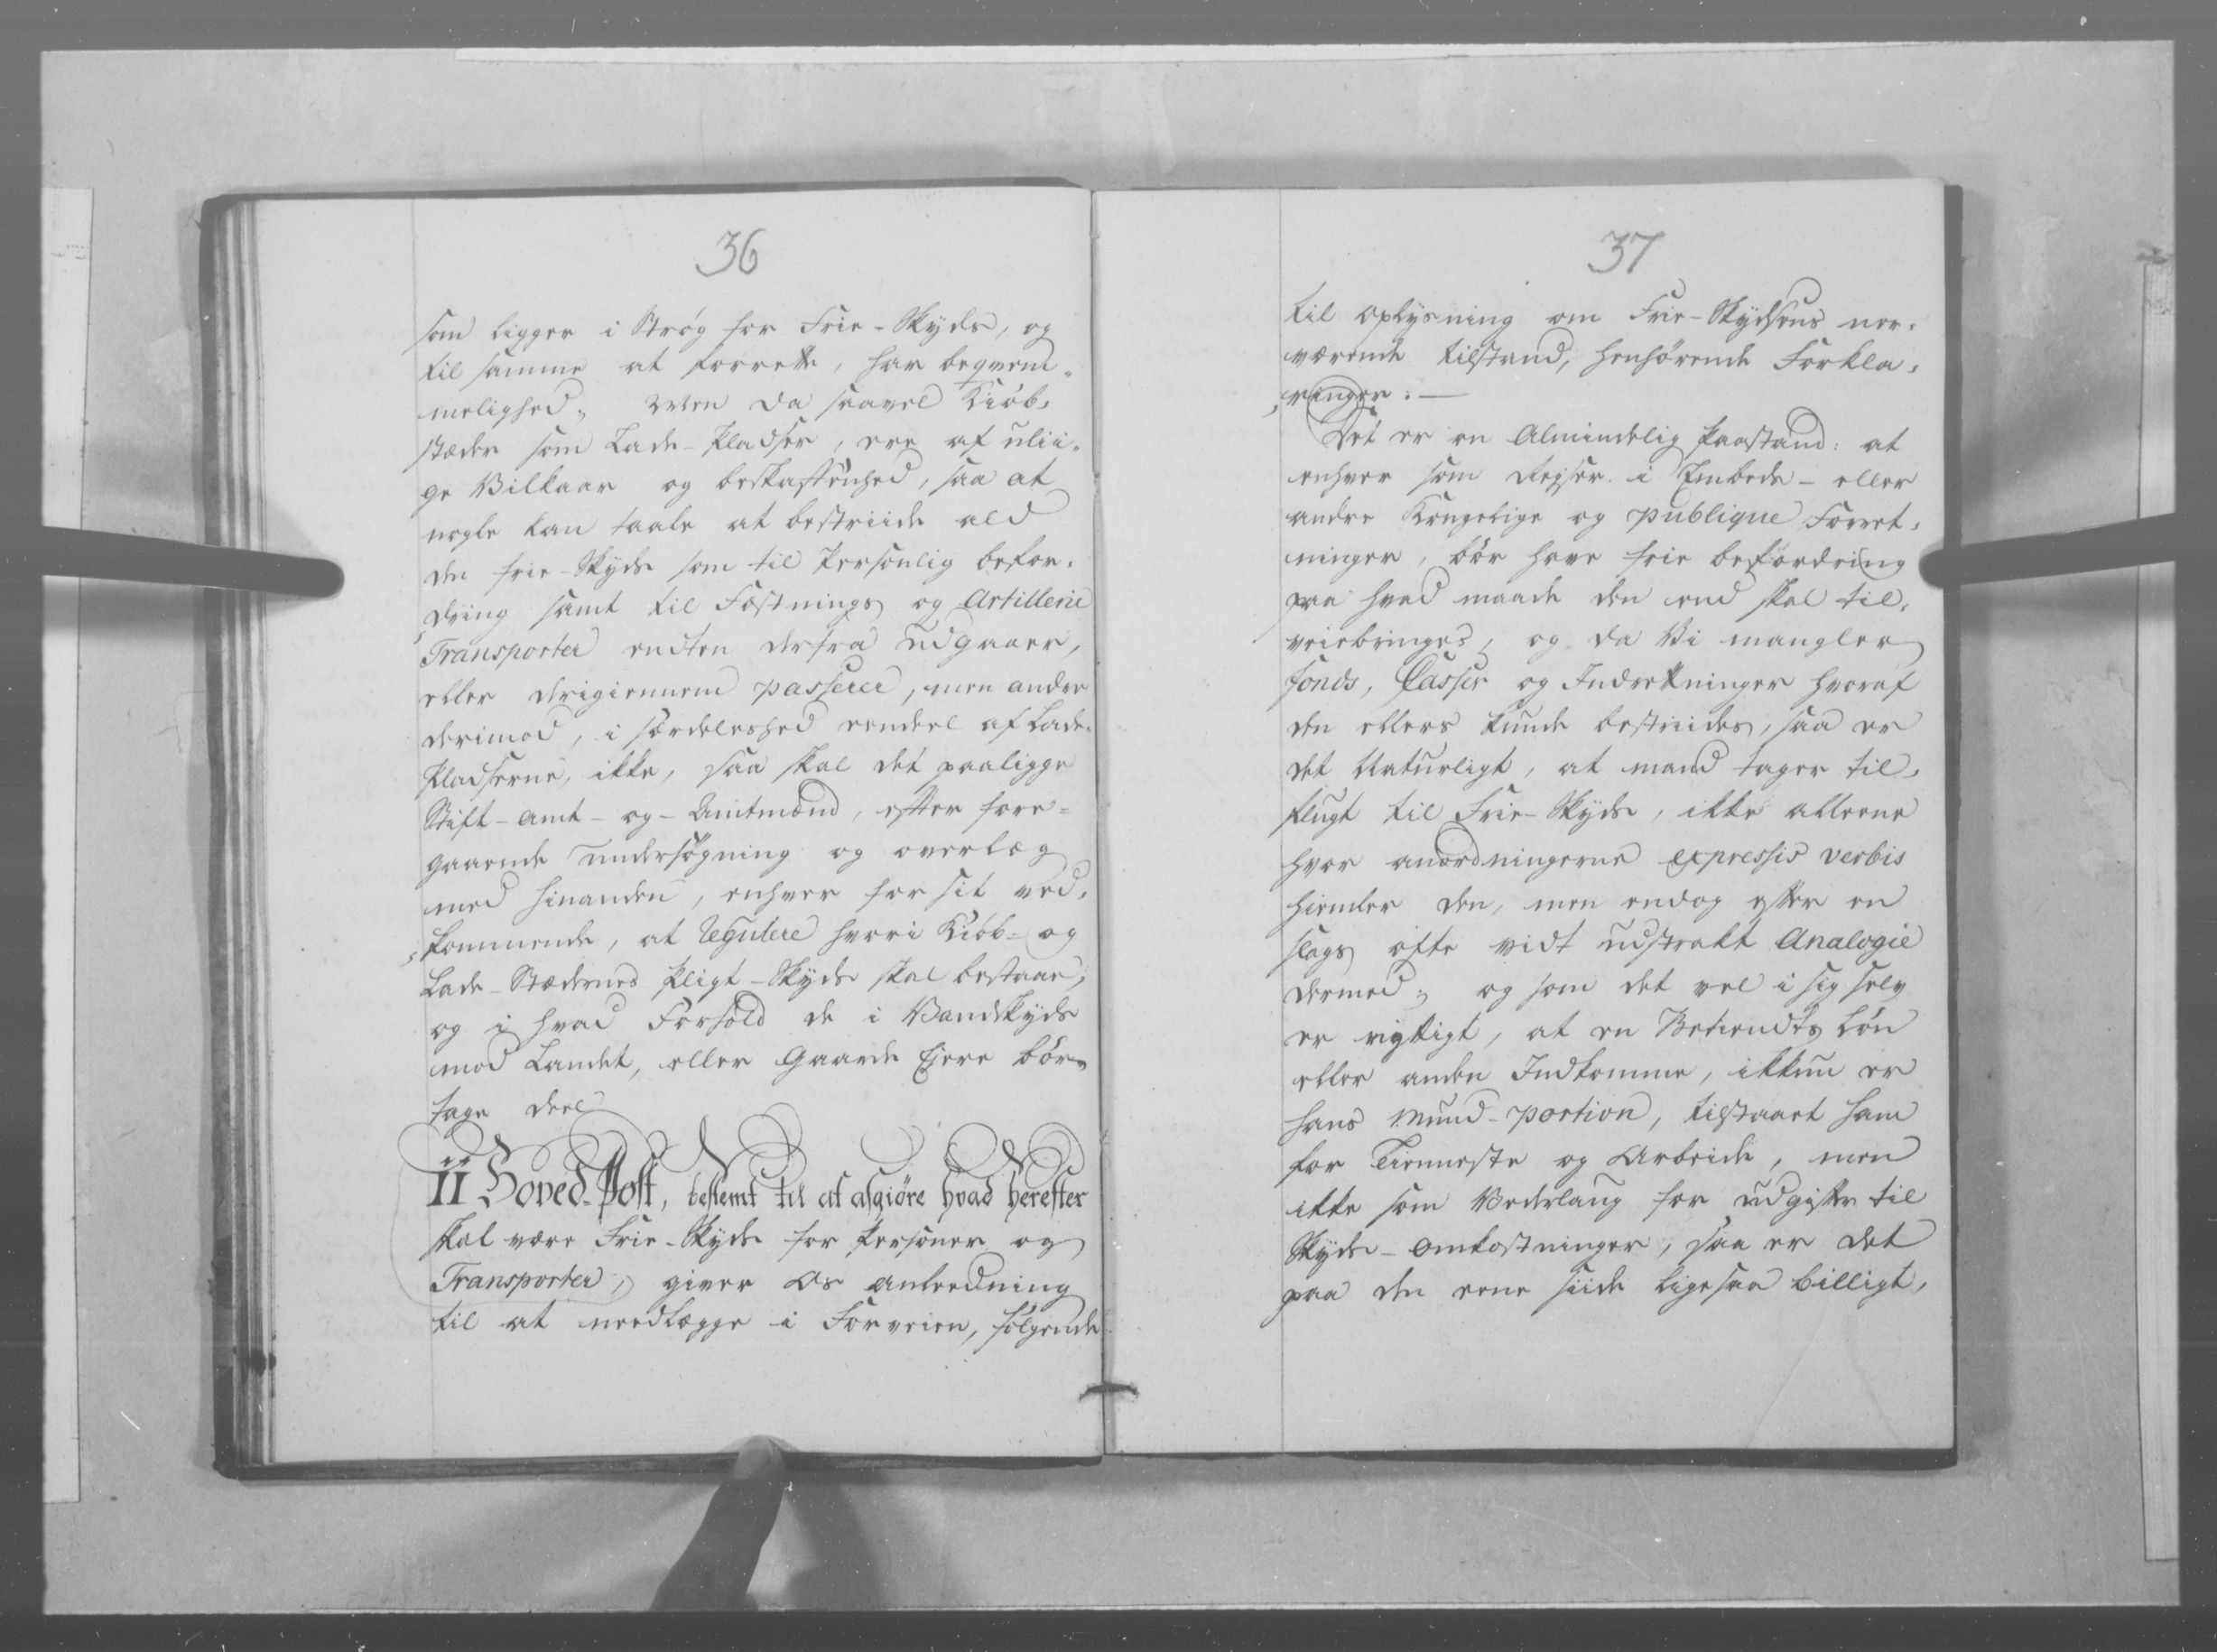 36
som ligger i Strøg for Frie-Skyds, og
til samme at forrette, har beqvem„
melighed„ Men da saavel Kiøb„
stæder som Lade-Pladser, ere af ulii„
ge Vilkaar og beskaffenhed, saa at
nogle kan taale at bestriide ald
den frie-Skyds som til Personlig befor„
„dring samt til Fæstnings og Artillerie
Transporter endten derfra udgaaer,
eller derigiennem passerer, men andre
derimod, i særdeleshed eendeel af Lade„
Pladserne, ikke, saa skal det paaligge
Stift-Amt-og-Amtmænd, efter fore„
gaaende undersøgning og overlæg
med hinanden, enhver for sit ved„
„kommende, at regulere hvori Kiøb- og
Lade-Stædernes Pligt-Skyds skal bestaae,
og i hvad Forhold de i Vandskyds
mod Landet, eller Gaarde Ejere bør
tage deel
II Hoved-Post, bestemt til at afgiøre hvad herefter
skal være Frie-Skyds for Personer og
Transporter, giver Os anleedning
til at needlægge i Forveien, følgende
37
til oplysning om Frie-Skydsens nær„
værende tilstand, henhørende Forkla„
„ringer:—
Det er en Almindelig Paastand: at
enhver som Rejser i Embeds- eller
andre Kongelige og publique Forret„
ninger, bør have frie befordring
paa hvad maade den end skal til„
veiebringes, og da Vi mangler
fonds, Casser og Indretninger hvoraf
den ellers kunde bestriides, saa er
det Naturligt, at mand tager til„
flugt til Frie-Skyds, ikke alleene
hvor anordningerne expressis verbis
hiemler den, men endog efter en
slags ofte vidt udstrakt Analogie
dermed; og som det vel i sig selv
er rigtigt, at en Betiendts Løn
eller anden Indkomme, ikkun er
hans Mund-portion, tilstaaet ham
for Tienneste og Arbeide, men
ikke som Vederlaug for udgifter til
Skyds-Omkostninger, saa er det
paa den eene siide ligesaa billigt,